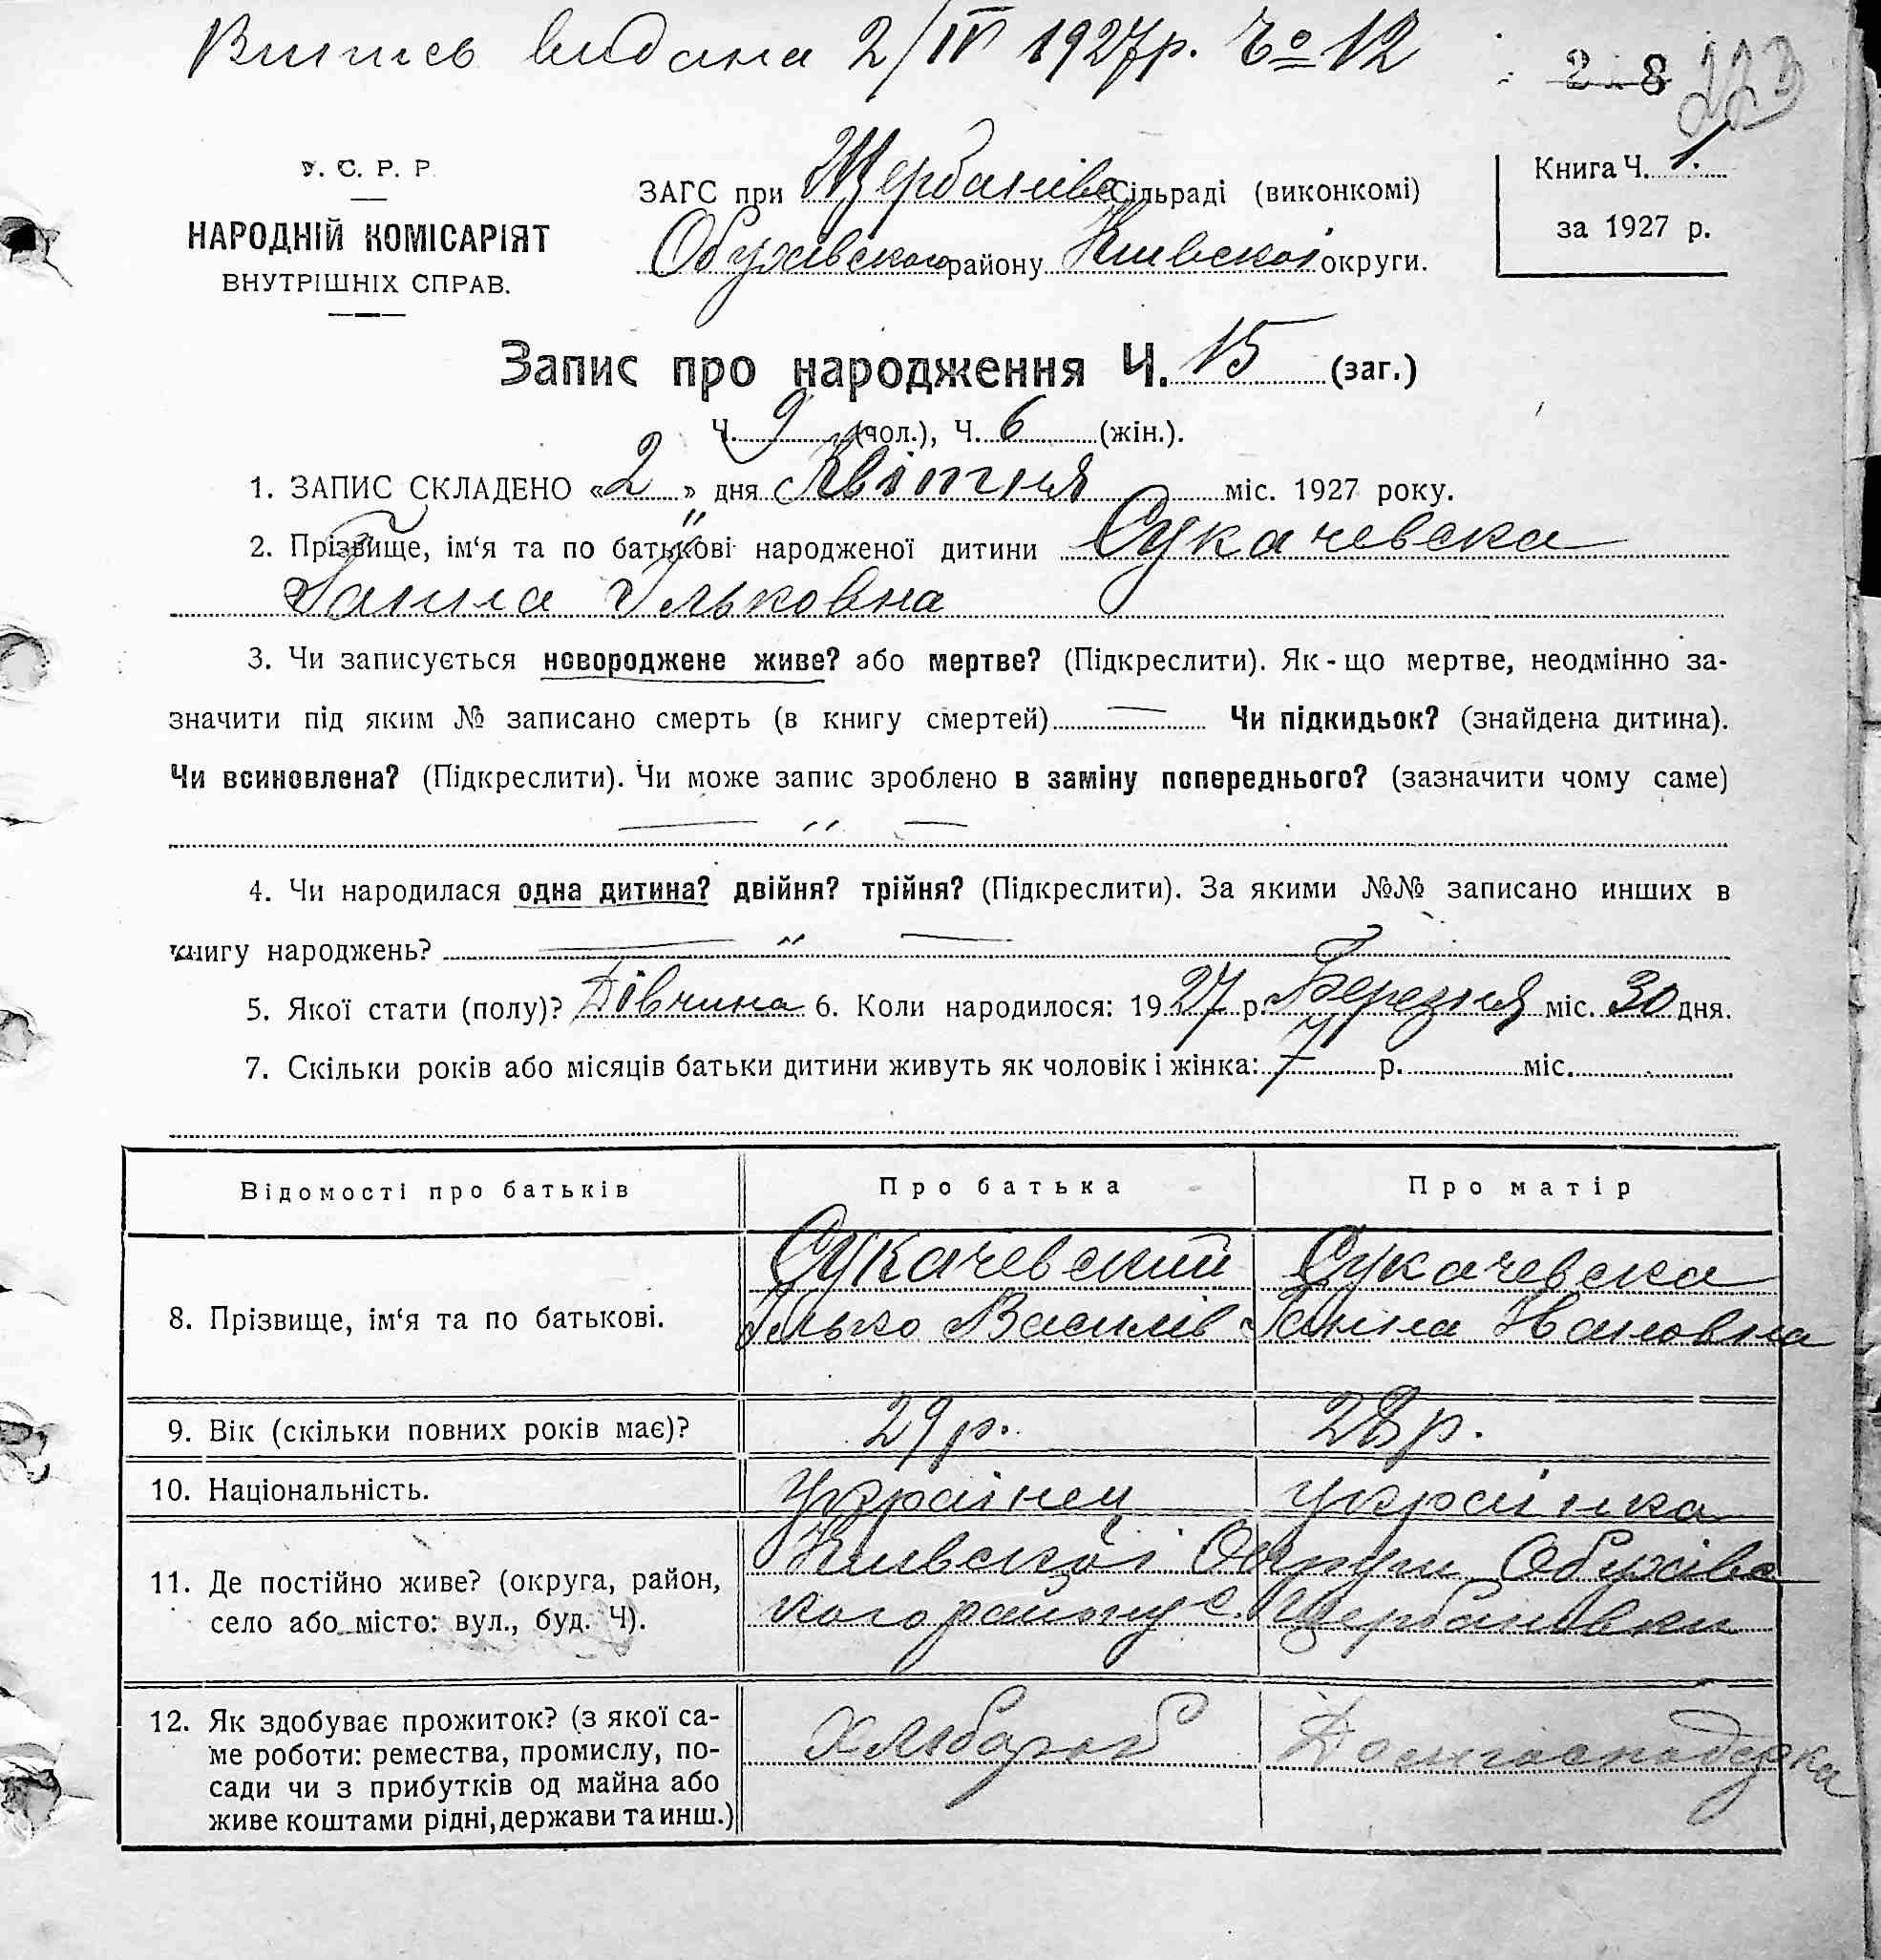 Випись видана 2/IV 1927р. Ч о 12
2 8 223
У. С. Р. Р.
НАРОДНІЙ КОМІСАРІЯТ
ВНУТРІШНІХ СПРАВ.
ЗАГС при Щербанівс Сільраді (виконкомі)
Обухівского району Київскоі округи.
Книга Ч. 1.
за 1927 р.
Запис про народження Ч. 15 (заг.)
Ч. 9 (чол.), Ч. 6 (жін.).
1. ЗАПИС СКЛАДЕНО «2» дня Квітня міс. 1927 року.
2. Прізвище, ім‘я та по батькові народженої дитини Сукачевска
Ганна Ільковна
3. Чи записується новороджене живе? або мертве? (Підкреслити). Як-що мертве, неодмінно за-
значити під яким № записано смерть (в книгу смертей) — Чи підкидьок? (знайдена дитина).
Чи всиновлена? (Підкреслити). Чи може запис зроблено в заміну попереднього? (зазначити чому саме)
— " —
4. Чи народилася одна дитина? двійня? трійня? (Підкреслити). За якими №№ записано инших в
книгу народжень? — " —
5. Якої стати (полу)? Дівчина 6. Коли народилося: 1927 р. Березня міс. 30 дня.
7. Скільки років або місяців батьки дитини живуть як чоловік і жінка: 7 р. міс.
Відомості про батьків Про батька Про матір
Сукачевский Сукачевска
8. Прізвище, ім‘я та по батькові. Ілько Василів Ганна Івановна
9. Вік (скільки повних років має)? 29 р. 28 р.
10. Національність. Українец українка
Київскоі Округи Обухівс
11. Де постійно живе? (округа, район, кого району с. Щербановки
село або місто: вул., буд. Ч).
12. Як здобуває прожиток? (з якої са- Хлібороб Домгосподарка
ме роботи: ремества, промислу, по-
сади чи з прибутків од майна або
живе коштами рідні, держави та инш.)